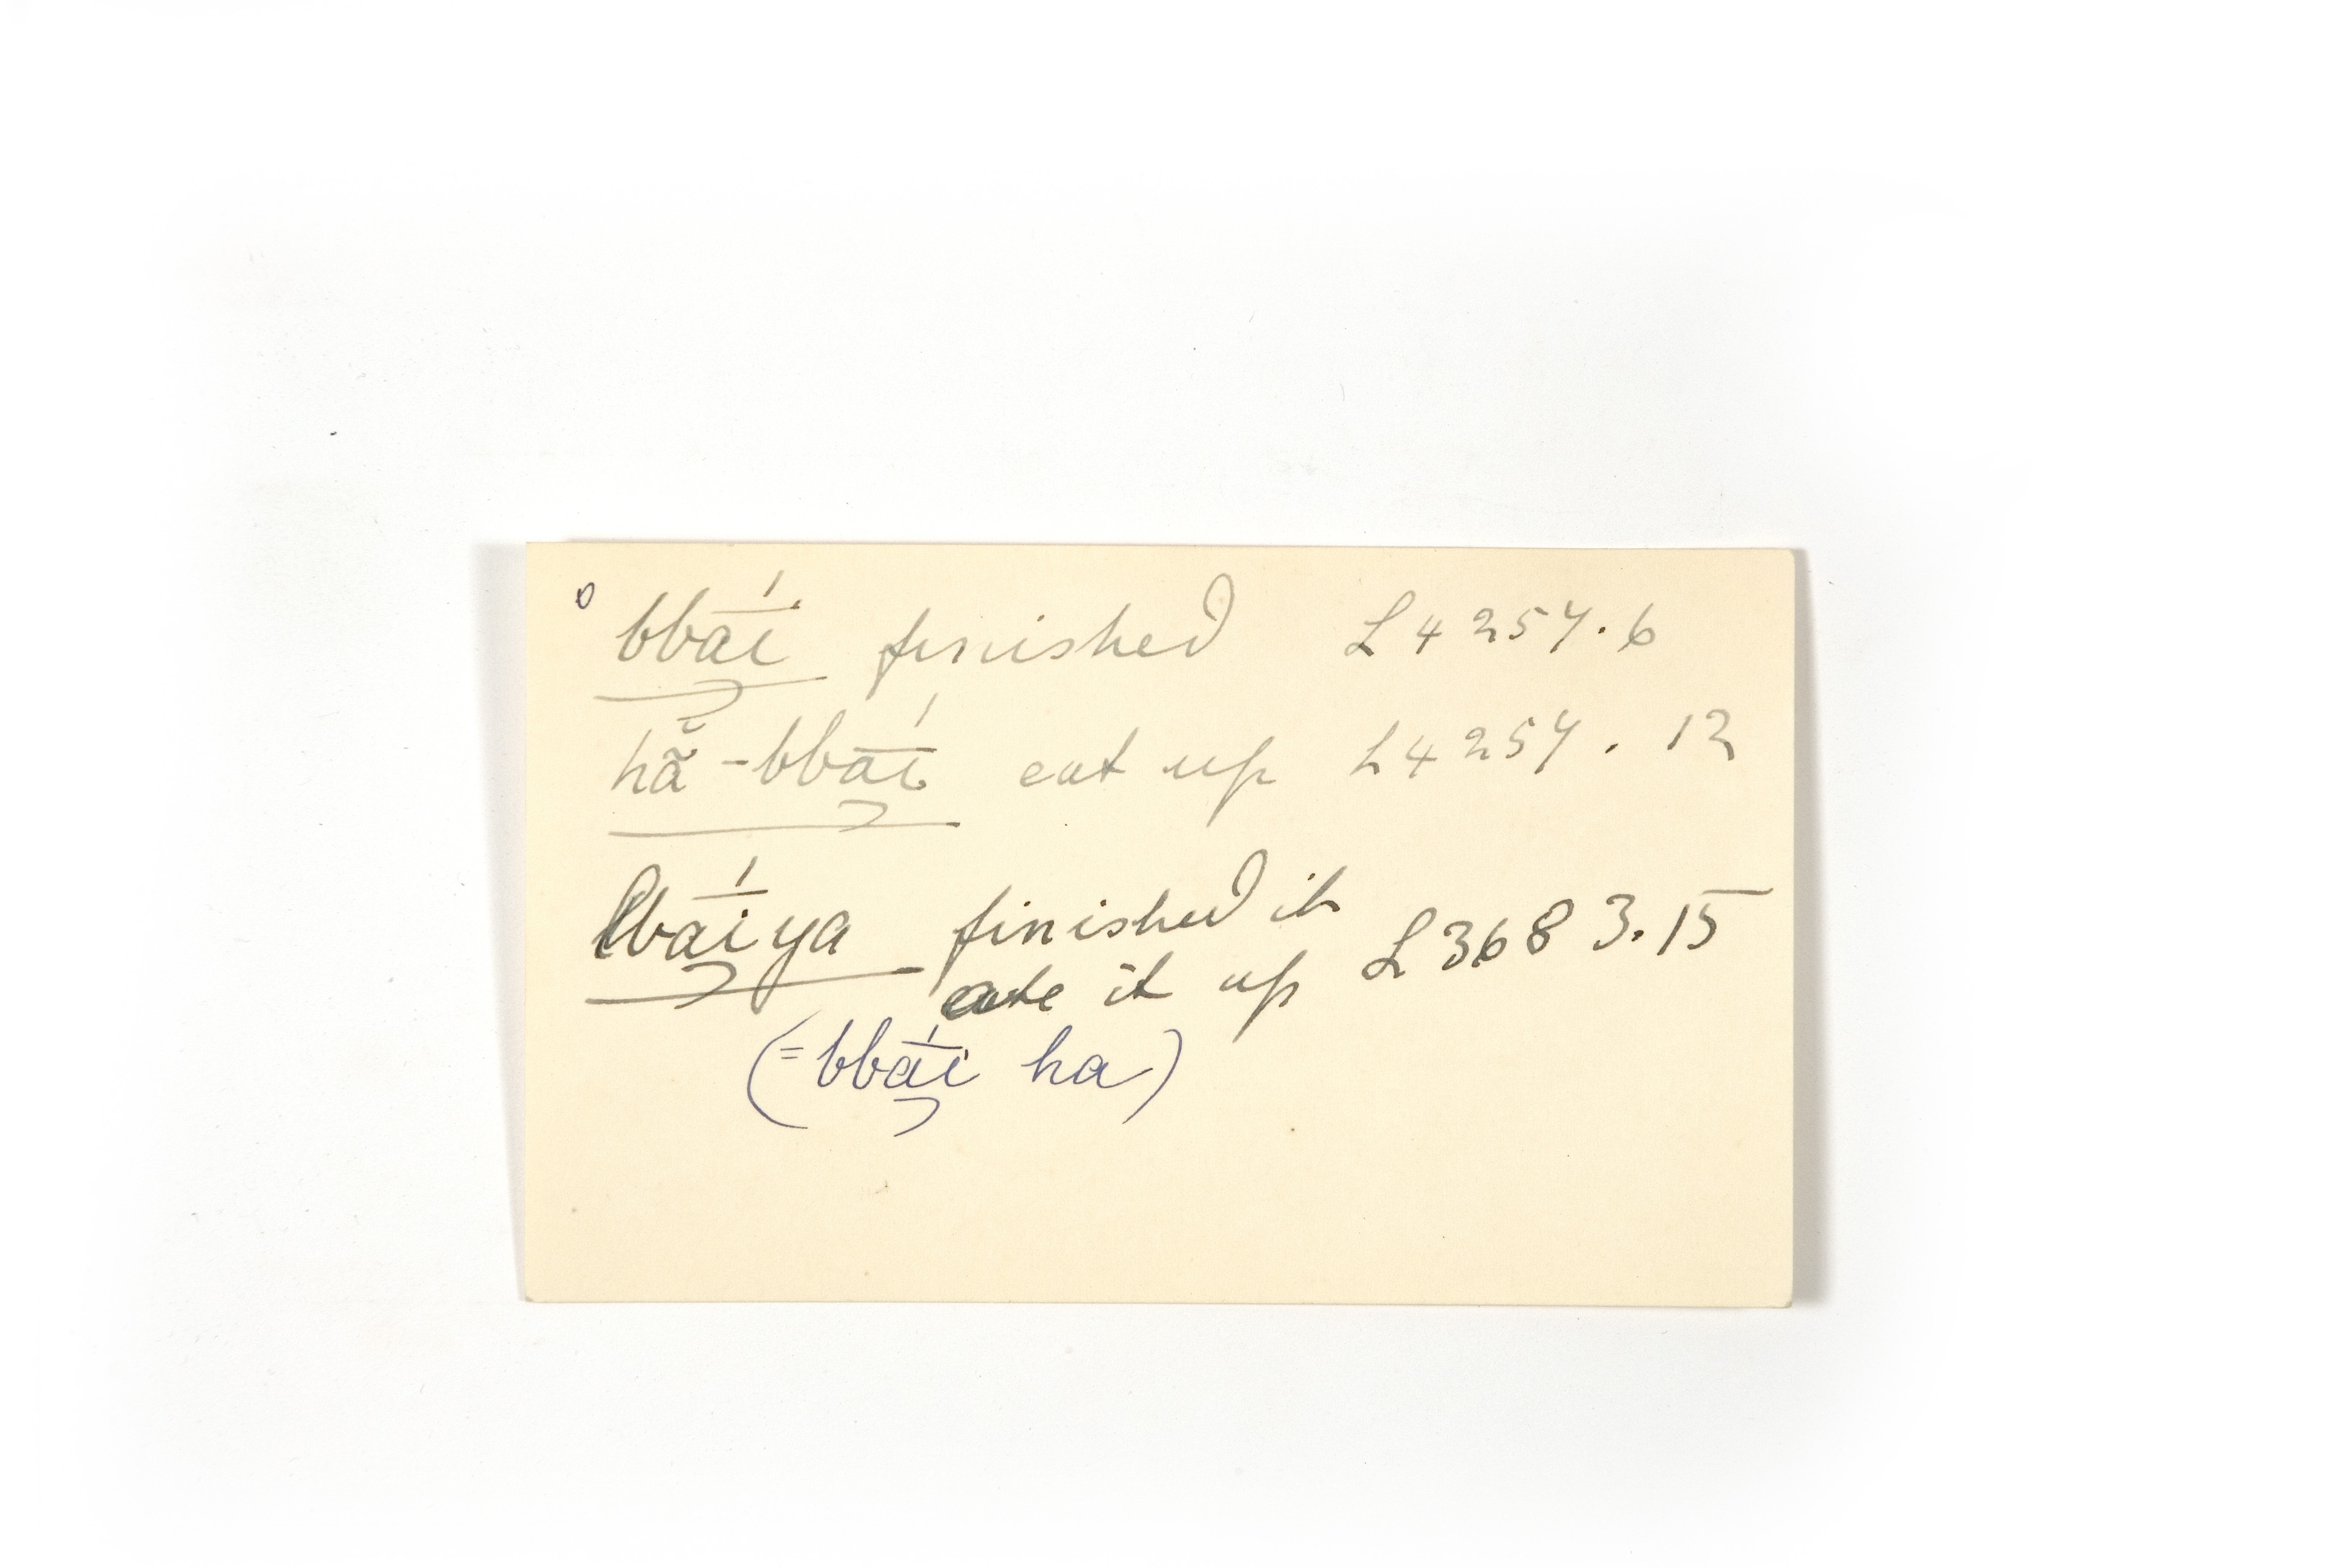 o bbā́i finished L4257.6
hã̆-bbā́i eat up L4257.12
bbā́iya finished it
ate it up L3683.15
(=bbā́i ha)